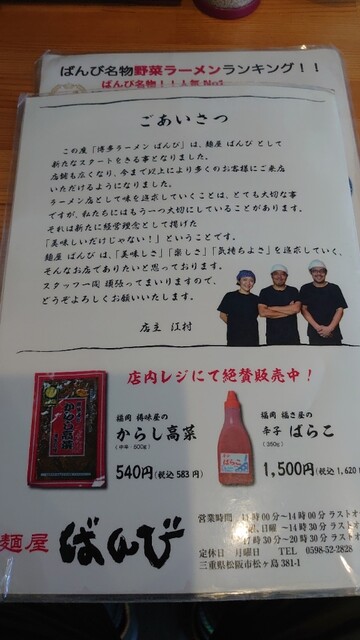 ばんび名物野菜ラーメンランキング！！
ばんび名物！人気No1
ごあいさつ
この度「博多ラーメン ばんび」は、麺屋 ばんび として
新たなスタートをきる事となりました。
店舗も広くなり、今まで以上により多くのお客様にご来店
いただけるようになりました。
ラーメン店として味を追求していくことは、とても大切な事
ですが、私たちにはもう一つ大切にしていることがあります。
それは新たに経営理念として掲げた
「美味しいだけじゃない！」ということです。
麺屋 ばんび は、「美味しさ」「楽しさ」「気持ちよさ」を追求していく、
そんなお店でありたいと思っております。
スタッフ一同 頑張ってまいりますので、
どうぞよろしくお願いいたします。
店主 江村
店内レジにて絶賛販売中！
福岡 樽味屋の
からし高菜
540円(税込 583 円)
福岡 福さ屋の
辛子 ばらこ
(260g)
1,500円(税込 1,620
麺屋 ばんび
営業時間 11時00分〜14時00分 ラストオ
日曜 〜14時30分 ラストオ
17時30分〜20時30分 ラストオ
定休日 月曜日 TEL 0598-52-2828
三重県松阪市松ヶ島 381-1